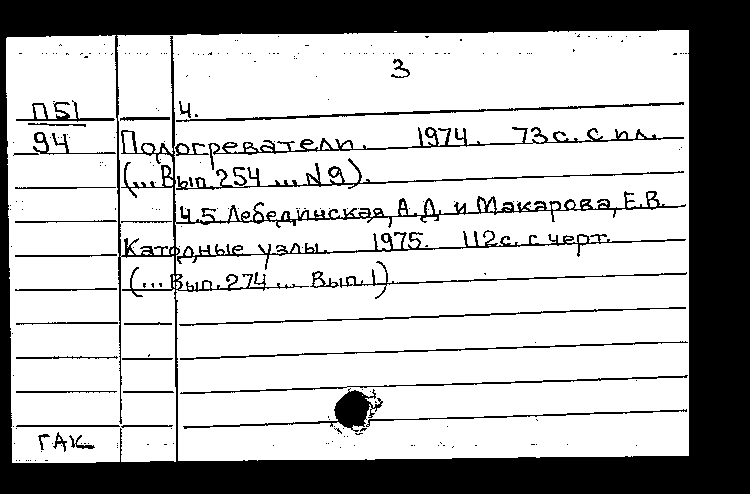 3
П51
94
Ч.
Подогреватели. 1974. 73 с. с ил.
(...Вып. 254 ... №9).
Ч.5 Лебединская, А.Д. и Макарова, Е.В.
Катодные узлы. 1975. 112с. с черт.
(... Вып. 274 ... Вып. 1)
ГАК